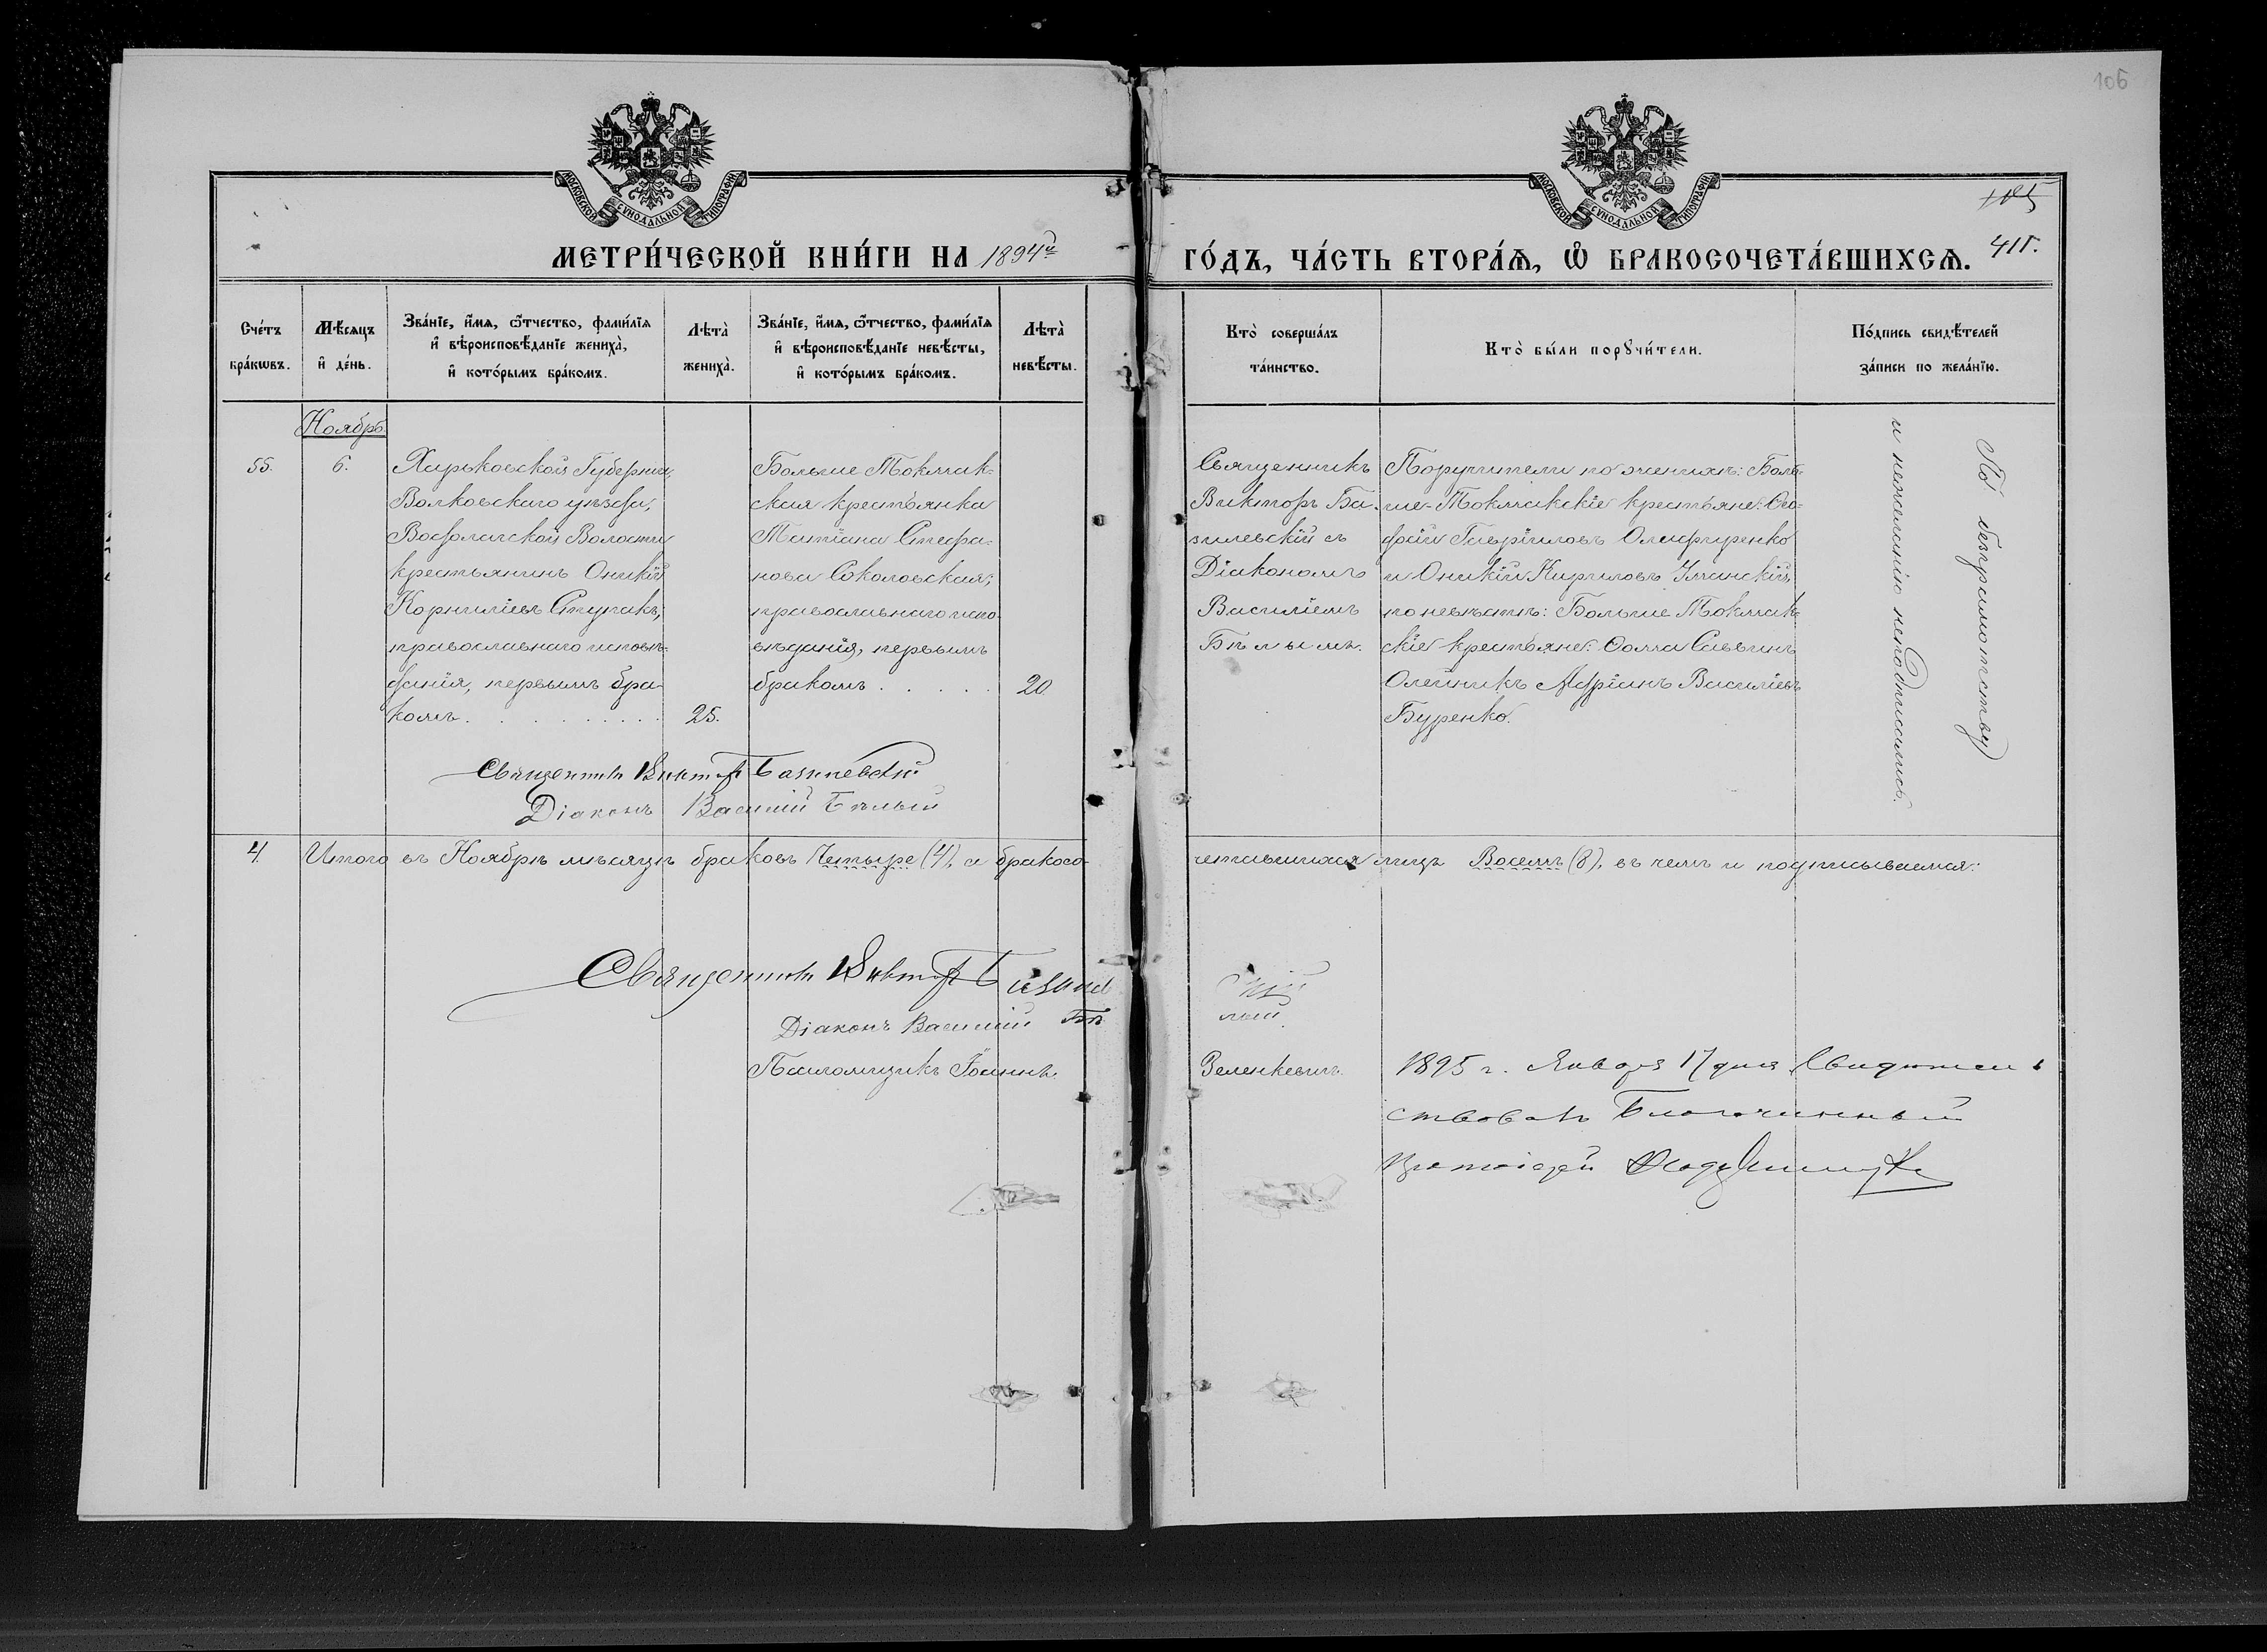 106
МОСКОВСКОЙ СУНОДАЛЬНОЙ ТИПОГРАФІИ
МОСКОВСКОЙ СУНОДАЛЬНОЙ ТИПОГРАФІИ
105
МЕТРИ́ЧЕСКОЙ КНИ́ГИ НА 1894й
ГО́ДЪ, ЧА́СТЬ ВТОРА́Ѧ, Ѽ БРАКОСОЧЕТА́ВШИХСѦ. 411.
Сче́тъ бра́кѡвъ.
Мѣ́сѧцъ и҆ де́нь.
Зва́нїе, и҆́мѧ, ѻ҆́тчество, фами́лїѧ и҆ вѣроисповѣ́данїе жениха̀, и҆ кото́рымъ бра́комъ.
Лѣта̀ жениха̀.
Зва́нїе, и҆́мѧ, ѻ҆́тчество, фами́лїѧ и҆ вѣроисповѣ́данїе невѣ́сты, и҆ кото́рымъ бра́комъ.
Лѣта̀ невѣ́сты.
Кто̀ соверша́лъ та́инство.
Кто̀ бы́ли порꙋчи́тели.
По́дпись свидѣ́телей за́писи по жела́нїю.
Ноябрь
55.
6.
Харьковской Губерніи,
Волковскаго уѣзда,
Водолагской Волости
крестьянинъ Оникій
Корниліевъ Ступакъ,
православнаго исповѣ-
данія, первымъ бра-
комъ . . . . . . . . . .
25.
Больше Токмак-
ская крестьянка
Татіана Стефа-
нова Соколовская;
православнаго испо-
вѣданія, первымъ
бракомъ . . . . .
20
Священникъ
Викторъ Ба-
зилевскій съ
Діакономъ
Василіемъ
Бѣлымъ.
Поручители по женихѣ: Боль-
ше-Токмакскіе крестьяне:
Гавріиловъ
и Оникій Кирилловъ Уманскій,
по невѣстѣ: Больше Токмак-
скіе крестьяне: Ѳома Саввинъ
Олейникъ Адріанъ Василіевъ
Буренко.
По безграмотству
и нежеланію неподписались.
Священникъ Викторъ Базилевскій
Діаконъ Василій Бѣлый
4.
Итого въ Ноябрѣ мѣсяцѣ браковъ Четыре (4), а бракосо-
четавшихся лицъ Восемь (8), въ чемъ и подписываемся:
Священникъ Викторъ Базилевскій
Діаконъ Василій Бѣлый
Псаломщикъ Іоаннъ Зеленкевичъ
1895 г. Января 17 дня Свидѣтель
ствовалъ Благочинный
Протоіерей